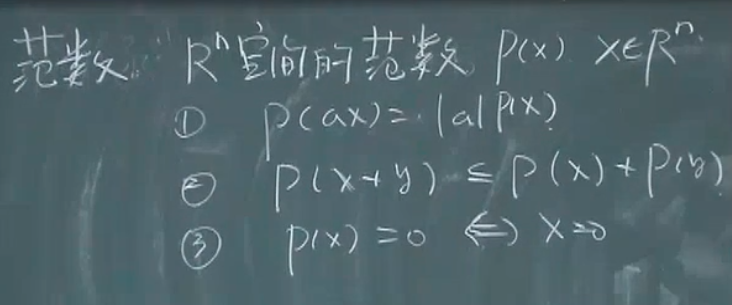 范数 Rⁿ空间的范数 P(x) x∈Rⁿ.
① p(ax) = |a| P(x)
② p(x+y) ≤ p(x) + p(y)
③ p(x) = 0 ⇔ x=0